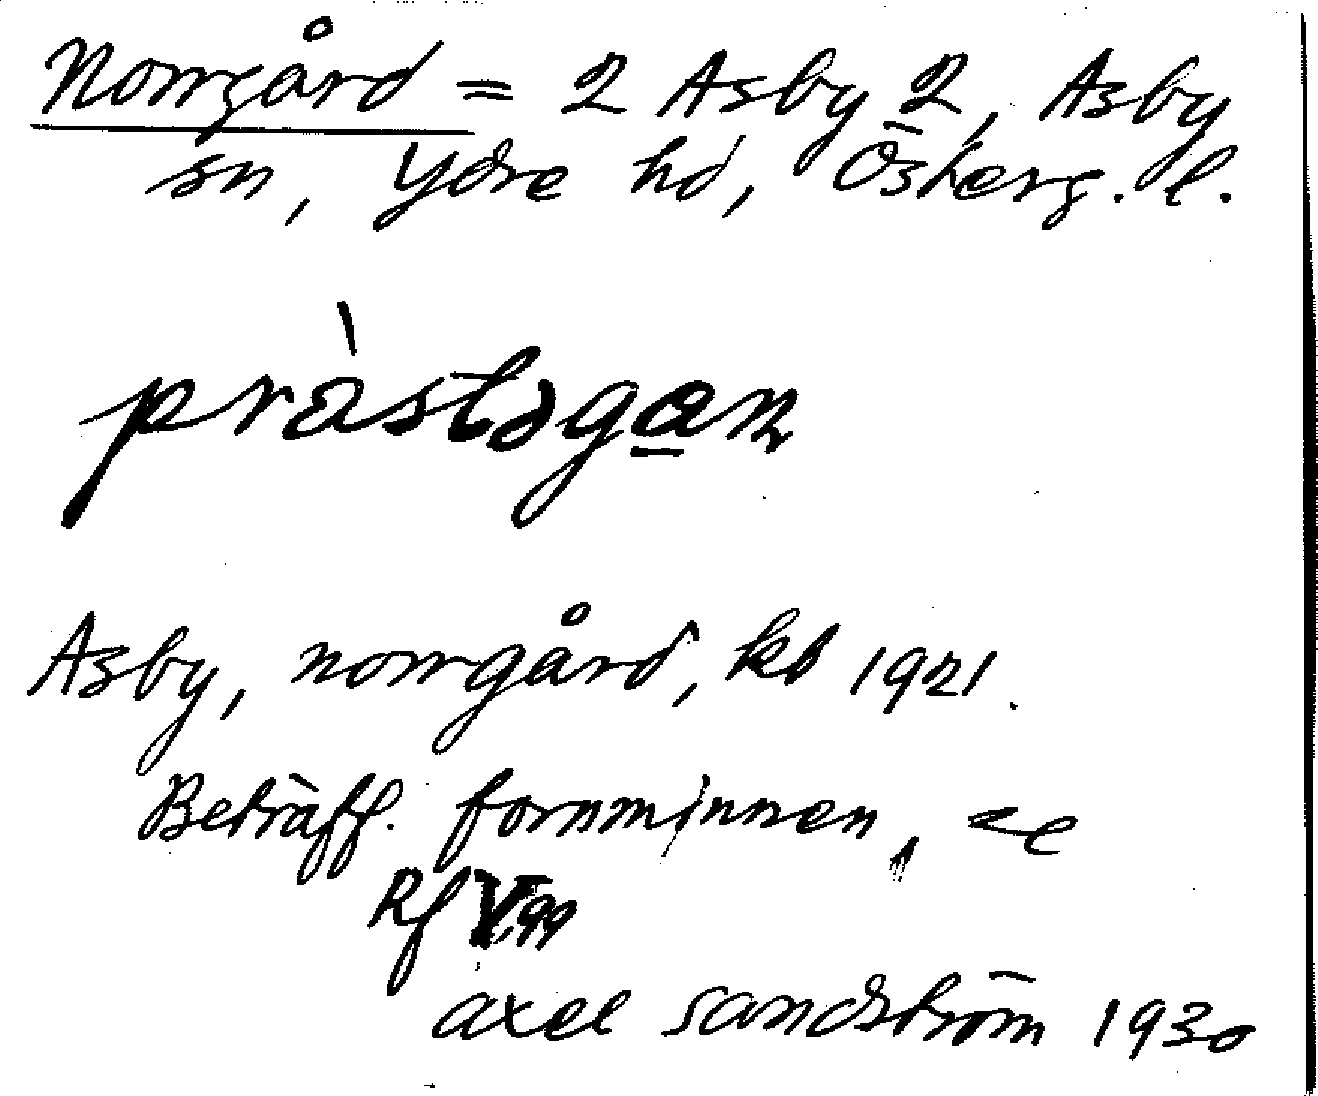 Norrgård = 2 Asby 2, Asby
sn, Ydre hd, Österg. l.
pràstəgan
Asby, norrgård, kb 1921.
Beträff. fornminnen, se
Rf V,99
axel sandström 1930